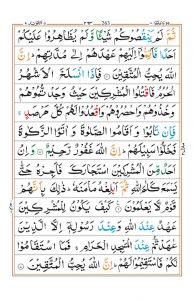 263
ثُمَّ لَمْ يَنْقُصُوْكُمْ شَيْـًٔا وَّلَمْ يُظَاهِرُوْا عَلَيْكُمْ
اَحَدًا فَاَتِمُّوْۤا اِلَيْهِمْ عَهْدَهُمْ اِلٰى مُدَّتِهِمْ ؕ اِنَّ
اللّٰهَ يُحِبُّ الْمُتَّقِيْنَ ۝ فَاِذَا انْسَلَخَ الْاَشْهُرُ
الْحُرُمُ فَاقْتُلُوا الْمُشْرِكِيْنَ حَيْثُ وَجَدْتُّمُوْهُمْ
وَخُذُوْهُمْ وَاحْصُرُوْهُمْ وَاقْعُدُوْا لَهُمْ كُلَّ مَرْصَدٍ ۚ
فَاِنْ تَابُوْا وَاَقَامُوا الصَّلٰوةَ وَاٰتَوُا الزَّكٰوةَ
فَخَلُّوْا سَبِيْلَهُمْ ؕ اِنَّ اللّٰهَ غَفُوْرٌ رَّحِيْمٌ ۝ وَاِنْ
اَحَدٌ مِّنَ الْمُشْرِكِيْنَ اسْتَجَارَكَ فَاَجِرْهُ حَتّٰى
يَسْمَعَ كَلٰمَ اللّٰهِ ثُمَّ اَبْلِغْهُ مَاْمَنَهٗ ؕ ذٰلِكَ بِاَنَّهُمْ
قَوْمٌ لَّا يَعْلَمُوْنَ ۝ كَيْفَ يَكُوْنُ لِلْمُشْرِكِيْنَ
عَهْدٌ عِنْدَ اللّٰهِ وَعِنْدَ رَسُوْلِهٖۤ اِلَّا الَّذِيْنَ
عٰهَدْتُّمْ عِنْدَ الْمَسْجِدِ الْحَرَامِ ۚ فَمَا اسْتَقَامُوْا
لَكُمْ فَاسْتَقِيْمُوْا لَهُمْ ؕ اِنَّ اللّٰهَ يُحِبُّ الْمُتَّقِيْنَ ۝